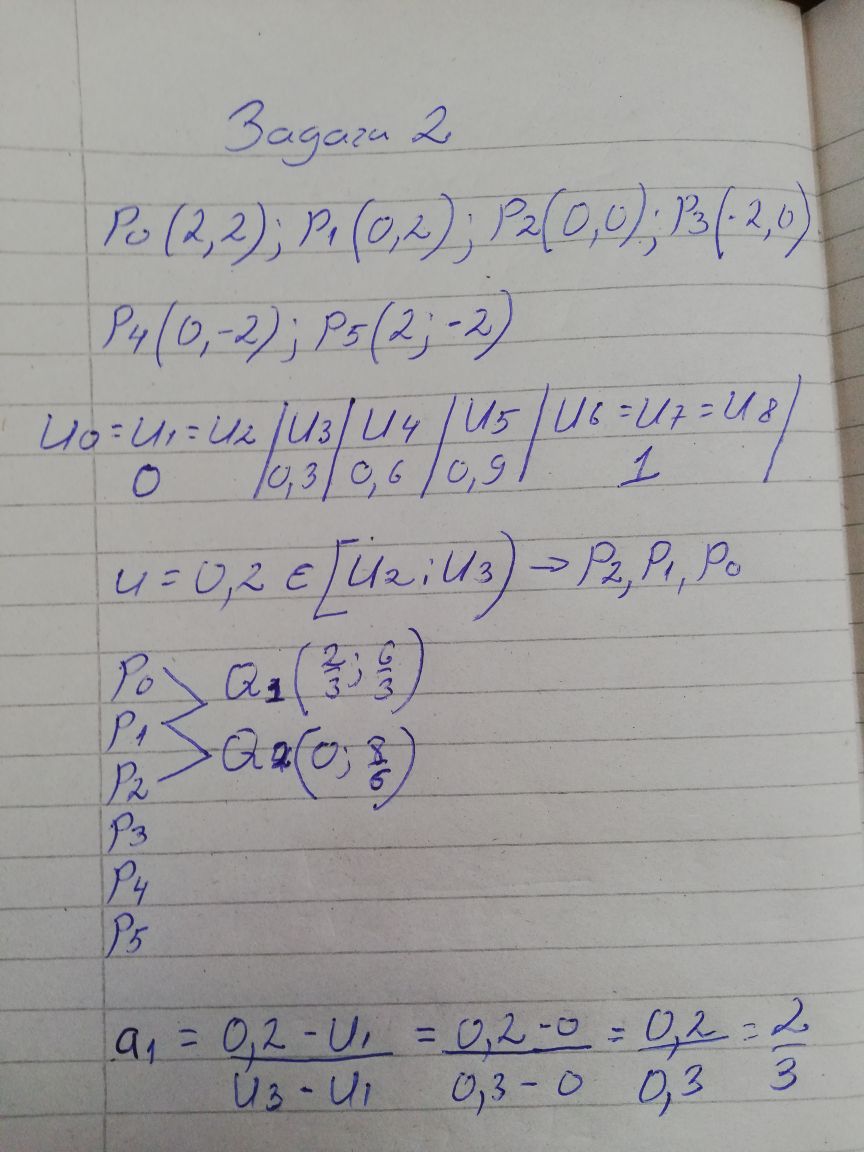 Задачи 2
P0(2,2); P1(0,2); P2(0,0); P3(-2,0)
P4(0,-2); P5(2;-2)
u0=u1=u2 | u3 | u4 | u5 | u6=u7=u8 |
0 | 0,3 | 0,6 | 0,9 | 1
u = 0,2 ∈ [u2;u3) → P2, P1, P0
P0 Q1(2/3; 6/3)
P1
P2 Q2(0; 8/6)
P3
P4
P5
a1 = (0,2 - u1)/(u3 - u1) = (0,2-0)/(0,3-0) = 0,2/0,3 = 2/3